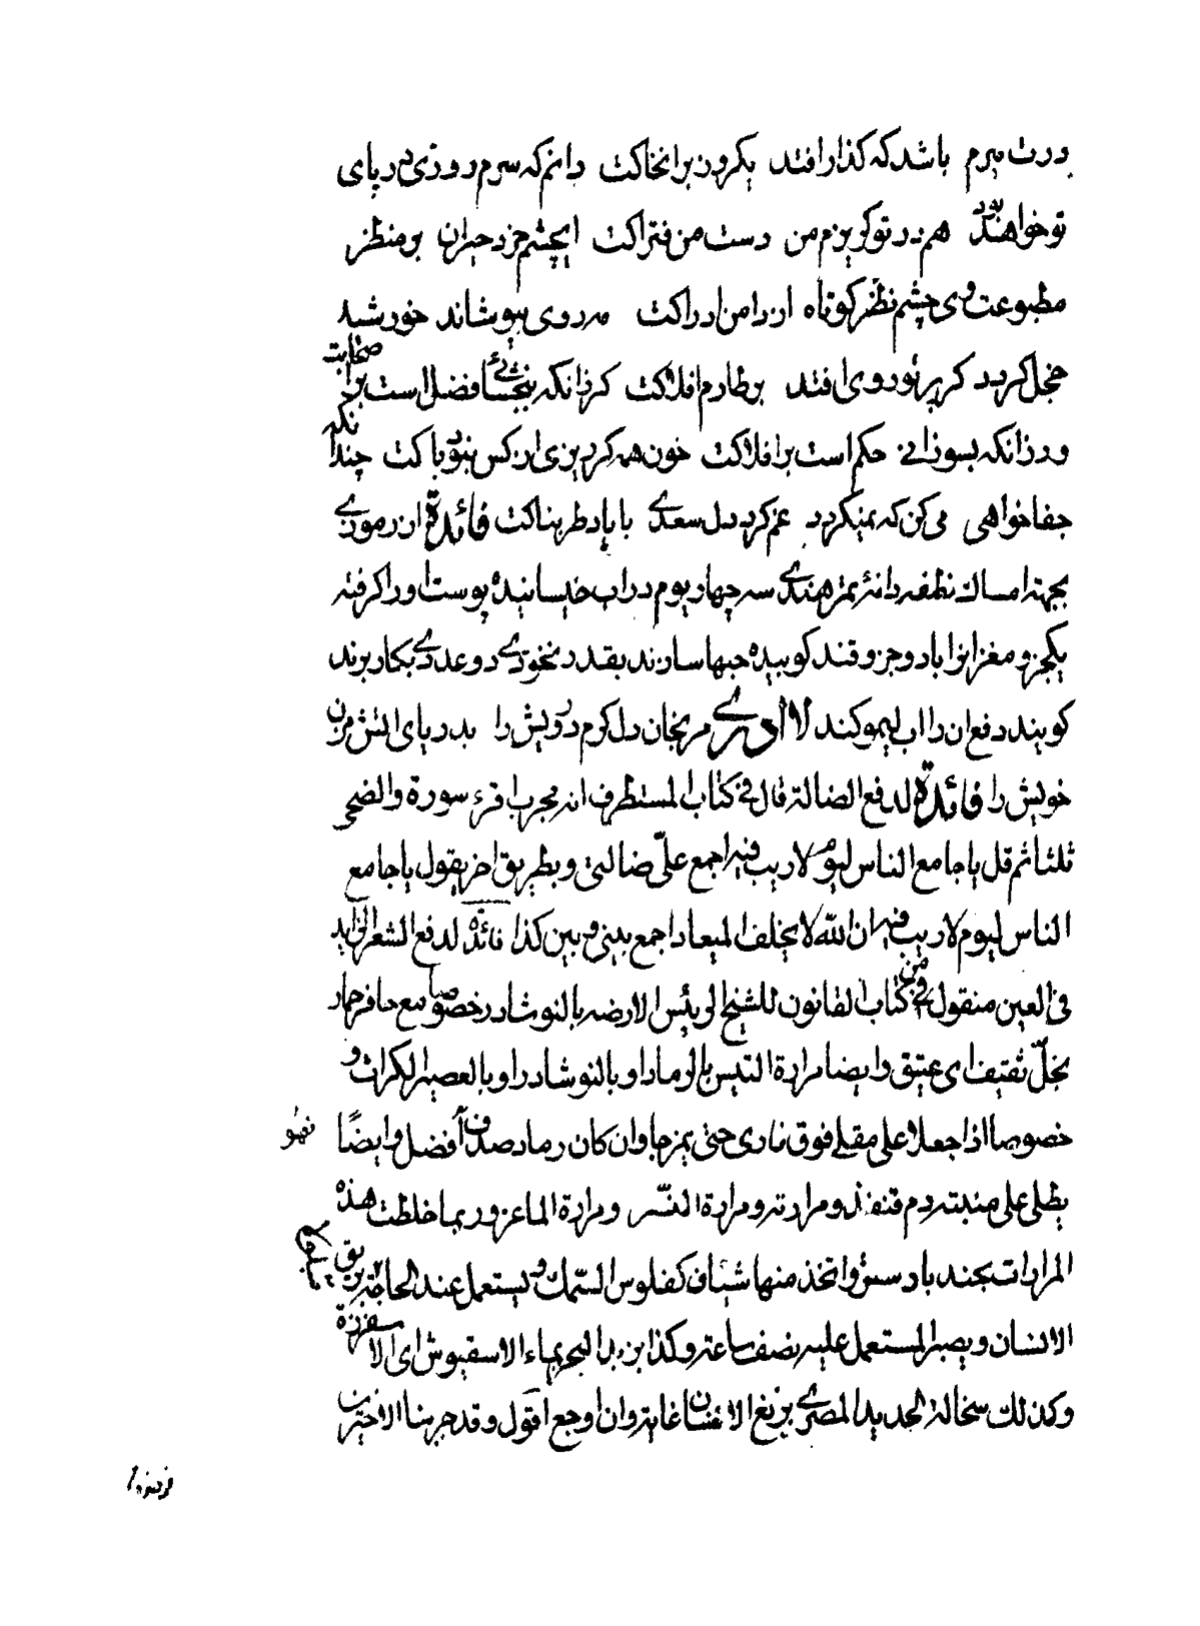 درت میرم باشد که گذار افتد یکروز بر انخاکت دانم که سرم روزی در پای
تو خواهد بود هم در تو گریزم من دست من فتراکت ایچشم خرد حیران بر منظر
مطبوعت وی چشم نظر کوتاه از دامن ادراکت مه روی بپوشاند خورشید
خجل گردد گر پرتو روی افتد بر طارم افلاکت گر زانکه ببخشائی فضل است بر اصحابت
ور زانکه بسوزانی حکم است بر افلاکت خون همه گر ریزی از کس نبود باکت چندانکه
جفا خواهی می کن که نمیگردد غم گرد دل سعدی با یاد طربناکت فائدة ان رموزی
بجهة امساك نطفه دانۀ تمر هندی سه چهار یوم در اب خیسانیده پوست او را گرفته
یکجزو مغز انرا با دو جزو قند کوبیده حبها سازند بقدر نخودی دو عددی بکار برند
کویند دفع ان را اب لیمو کند لا ادری مرنجان دل کرم درویش را بدریای اتش مزن
خویش را فائدة لدفع الضالة قال فی کتاب المستطرف انه مجرب اقرء سورة والضحی
ثلثا ثم قل یا جامع الناس لیوم لا ریب فیه اجمع علیّ ضالتی و بطریق اخر یقول یا جامع
الناس لیوم لا ریب فیه ان الله لا یخلف المیعاد اجمع بینی و بین کذا فائدة لدفع الشعر الزاید
فی العین منقول من کتاب القانون للشیخ الرئیس الارضه بالنوشادر خصوصا مع حافر حمار
بخلّ ثقیف ای عتیق و ایضا مرارة التیس بالرماد او بالنوشادر او بالعصیر الکراث و
خصوصا اذا جعلا علی مقلی فوق نار حتی یمزجا وان کان رماد صدف أفضل و ایضًا
یطلی علی منبته دم قنفذ و مرارته و مرارة النسر و مرارة الماعز و ربما خلطت هذه
المرارات بجند بادستر و اتخذ منها شیاف کفلوس السمك و یستعمل عند الحاجة بریق
الانسان و یصبر المستعمل علیه نصف ساعة و کذا زبد البحر بماء الاسقیوش ای الاسفرزة
و کذلك سخالة الحدید المصری بریغ الانسان غایة و ان اوجع اقول و قد جربنا الاخیرین
فهو